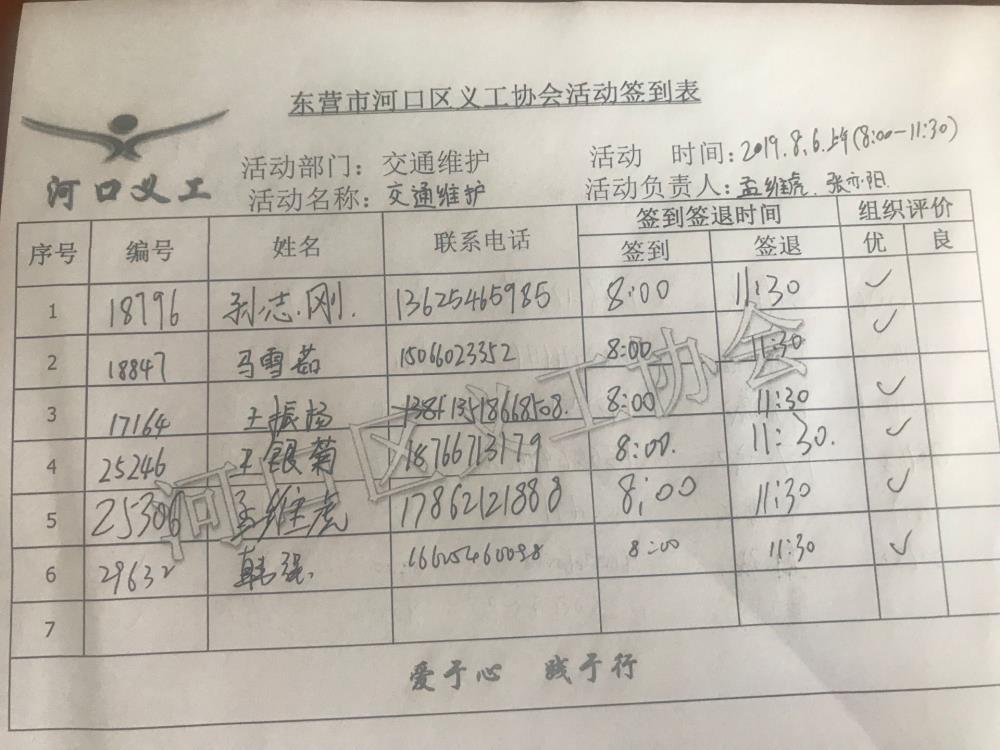 东营市河口区义工协会活动签到表
河口义工
活动部门：交通维护 活动 时间：2019.8.6.上午(8:00-11:30)
活动名称：交通维护 活动负责人：孟维虎、张亦阳
序号 编号 姓名 联系电话 签到签退时间 组织评价
签到 签退 优 良
1 18796 刘志刚. 13625465985 8:00 11:30 ✓
2 18847 马雪茹 15066023352 8:00 11:30 ✓
3 17164 王振杨 8:00 11:30 ✓
4 25246 王银菊 18766713179 8:00. 11:30. ✓
5 25306 孟维虎 17862121888 8:00 11:30 ✓
6 29632 韩强. 8:00 11:30 ✓
7
爱于心 践于行
河口区义工协会